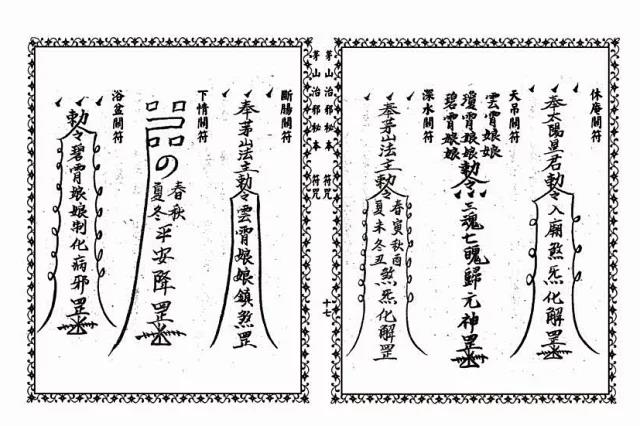 休庵關符
奉太陽星君勅令入廟煞炁化解罡
天吊關符
雲霄娘娘
瓊霄娘娘勅令三魂七魄歸元神罡
碧霄娘娘
深水關符
奉茅山法主勅令
春寅秋酉
夏未冬丑
煞炁化解罡
茅山治邪秘本 符咒
十七
茅山治邪秘本 符咒
斷腸關符
奉茅山法主勅令雲霄娘娘鎮煞罡
下情關符
春秋
夏冬
平安降罡
浴盆關符
勅令碧霄娘娘制化病邪罡